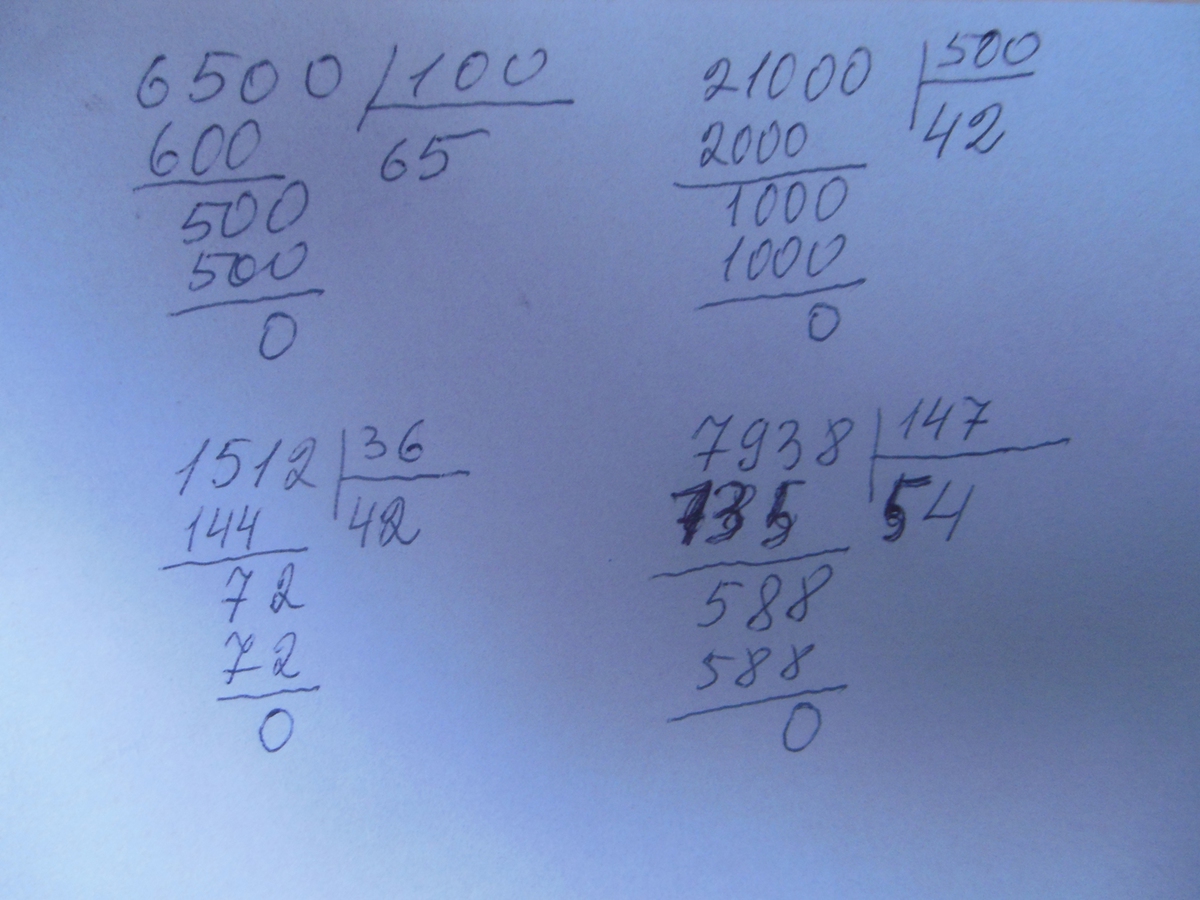 6500 100
600 65
500
500
0
21000 500
2000 42
1000
1000
0
1512 36
144 42
72
72
0
7938 147
735 54
588
588
0